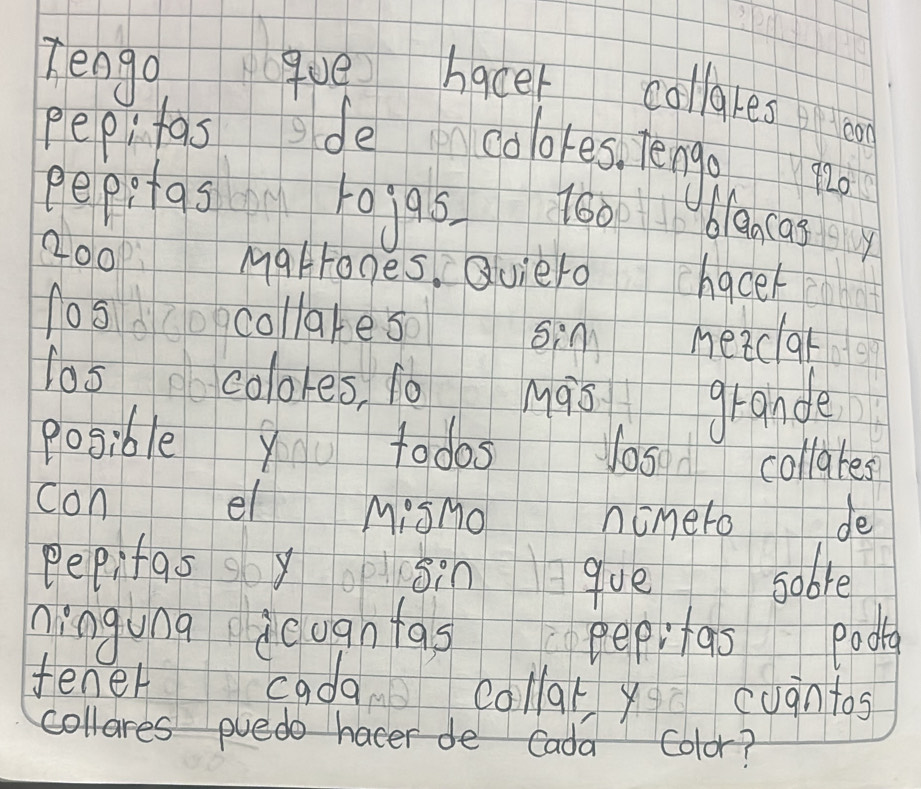 Tengo que hacer collares con
pepitas de colores. Tengo 120
pepitas rojas_ 160 blancas y
200 marrones. Quiero hacer
los collares sin mezclar
los colores, lo más grande
posible y todos los collares
con el mismo número de
pepitas y sin que sobre
ninguna ¿cuántas pepitas podra
tener cada collar, y cuántos
collares puedo hacer de cada color?